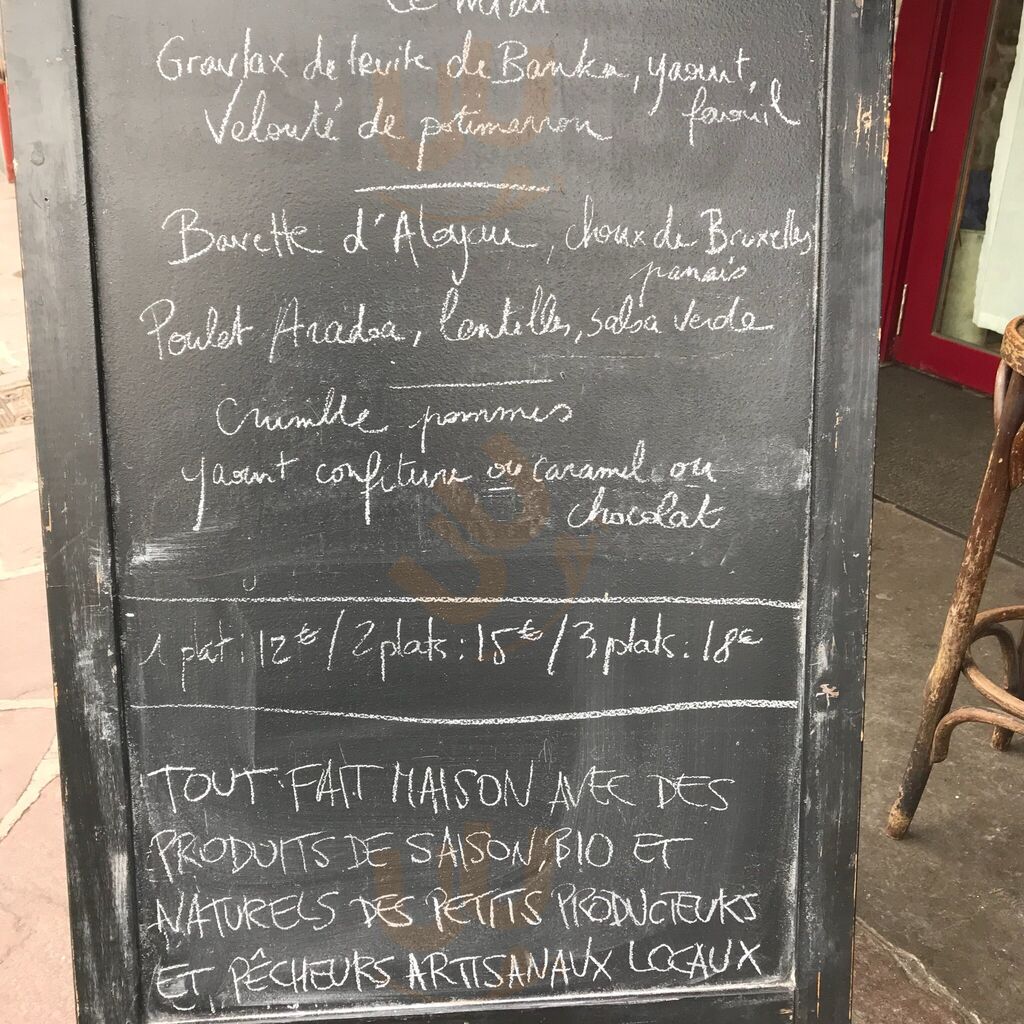 Le midi
Gravlax de truite de Banka, yaourt,
fenouil
Velouté de potimarron
Bavette d'Aloyau, choux de Bruxelles
panais
Poulet Aradoa, lentilles, salsa verde
Crumble pommes
yaourt confiture ou caramel ou
chocolat
1 plat : 12€ / 2 plats : 15€ / 3 plats : 18€
TOUT FAIT MAISON AVEC DES
PRODUITS DE SAISON, BIO ET
NATURELS DES PETITS PRODUCTEURS
ET PÊCHEURS ARTISANAUX LOCAUX